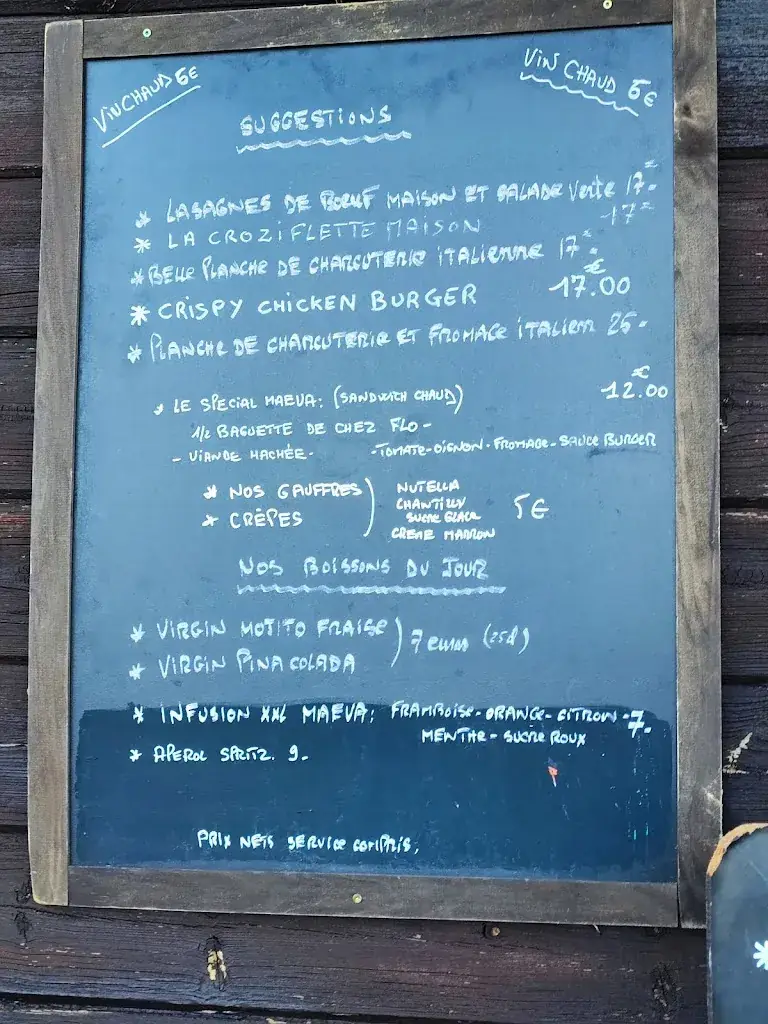 VIN CHAUD 6€
VIN CHAUD 6€
SUGGESTIONS
* LASAGNES DE BŒUF MAISON ET SALADE Verte 17.€
* LA CROZIFLETTE MAISON 17€
* BELLE PLANCHE DE CHARCUTERIE ITALIENNE 17.€
* CRISPY CHICKEN BURGER 17.00€
* PLANCHE DE CHARCUTERIE ET FROMAGE ITALIEN 25-
* LE SPECIAL MAEVA: (SANDWICH CHAUD) 12.00€
1/2 BAGUETTE DE CHEZ FLO-
- VIANDE HACHÉE- -TOMATE-OIGNON-FROMAGE-SAUCE BURGER
* NOS GAUFFRES) NUTELLA
* CRÊPES CHANTILLY 5€
SUCRE GLACE
CREME MARRON
NOS BOISSONS DU JOUR
* VIRGIN MOJITO FRAISE) 7 euros (25cl)
* VIRGIN PINA COLADA
* INFUSION XXL MAEVA: FRAMBOISE-ORANGE-CITRON-7.-
MENTHE-SUCRE ROUX
* APEROL SPRITZ. 9-
PRIX NETS SERVICE COMPRIS.
*